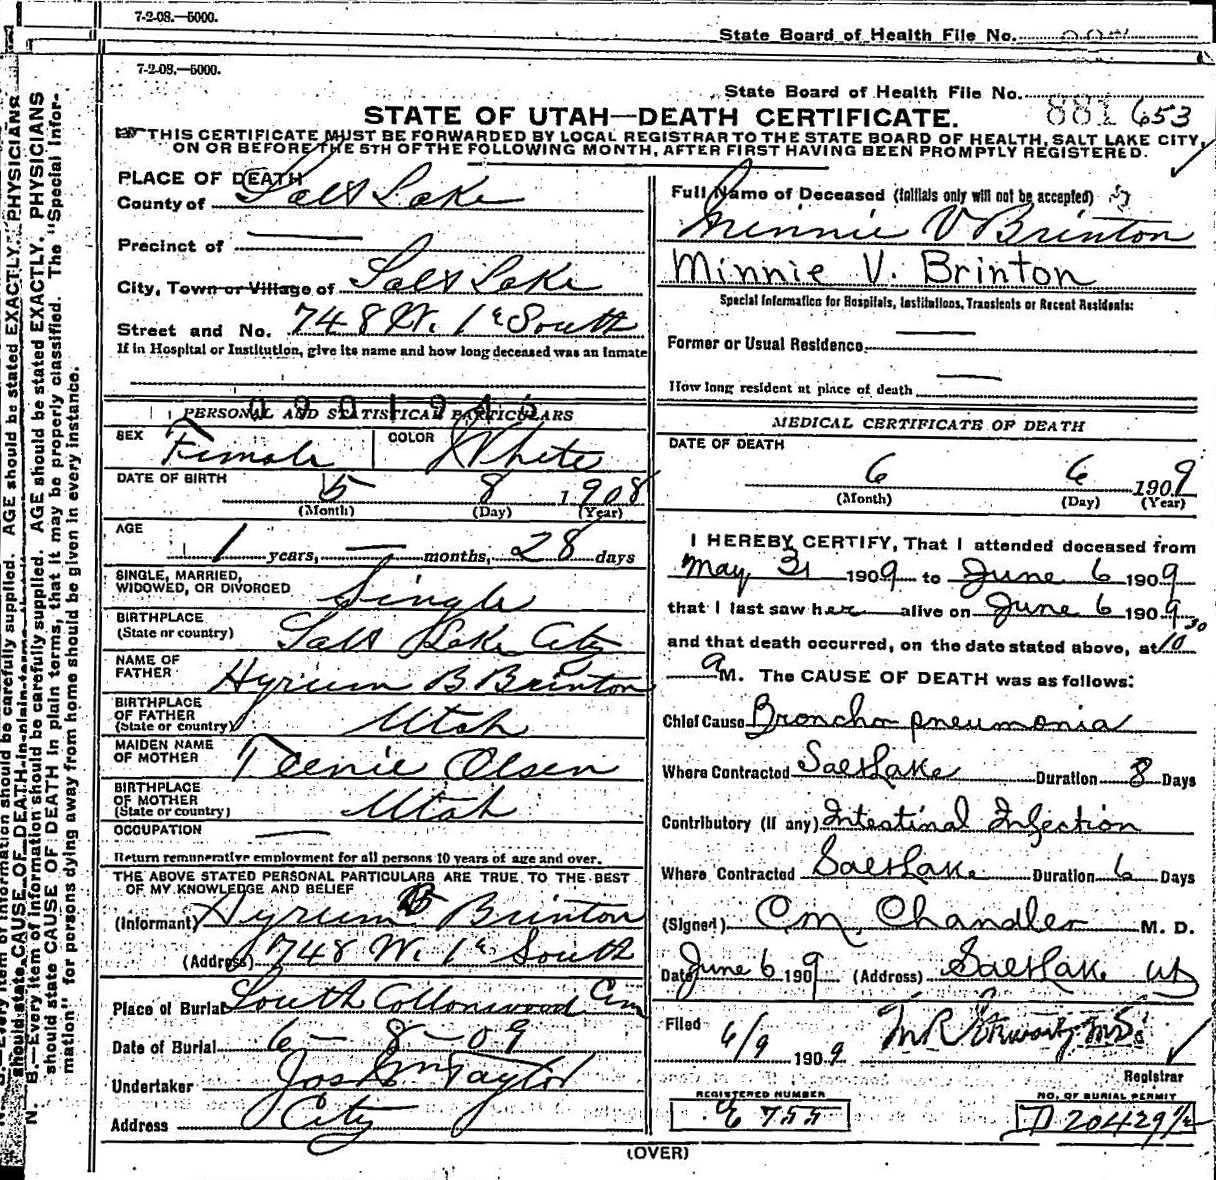 7-2-08.—5000.
State Board of Health File No.
7-2-08.—5000.
State Board of Health File No. 881 653
STATE OF UTAH—DEATH CERTIFICATE.
THIS CERTIFICATE MUST BE FORWARDED BY LOCAL REGISTRAR TO THE STATE BOARD OF HEALTH, SALT LAKE CITY,
ON OR BEFORE THE 5TH OF THE FOLLOWING MONTH, AFTER FIRST HAVING BEEN PROMPTLY REGISTERED.
PLACE OF DEATH
County of Salt Lake
Precinct of —
City, Town or Village of Salt Lake
Street and No. 748 W. 1st South
If in Hospital or Institution, give its name and how long deceased was an inmate
0901946
PERSONAL AND STATISTICAL PARTICULARS
SEX Female COLOR White
DATE OF BIRTH 5 8 1908
(Month) (Day) (Year)
AGE
1 years, — months, 28 days
SINGLE, MARRIED,
WIDOWED, OR DIVORCED Single
BIRTHPLACE
(State or country) Salt Lake City
NAME OF
FATHER Hyrum B Brinton
BIRTHPLACE
OF FATHER
(State or country) Utah
MAIDEN NAME
OF MOTHER Teenie Olsen
BIRTHPLACE
OF MOTHER
(State or country) Utah
OCCUPATION —
Return remunerative employment for all persons 10 years of age and over.
THE ABOVE STATED PERSONAL PARTICULARS ARE TRUE TO THE BEST
OF MY KNOWLEDGE AND BELIEF
(Informant) Hyrum B Brinton
(Address) 748 W. 1st South
Place of Burial South Cottonwood Cem
Date of Burial 6 — 8 — 09
Undertaker Jos Wm Taylor
Address City
Full Name of Deceased (Initials only will not be accepted)
Minnie V Brinton
Minnie V. Brinton
Special Information for Hospitals, Institutions, Transients or Recent Residents:
Former or Usual Residence —
How long resident at place of death —
MEDICAL CERTIFICATE OF DEATH
DATE OF DEATH
6 6 1909
(Month) (Day) (Year)
I HEREBY CERTIFY, That I attended deceased from
May 31 1909 to June 6 1909
that I last saw her alive on June 6 1909
and that death occurred, on the date stated above, at 10 30
a M. The CAUSE OF DEATH was as follows:
Chief Cause Broncho pneumonia
Where Contracted Salt Lake Duration 8 Days
Contributory (if any) Intestinal Infection
Where Contracted Salt Lake Duration 6 Days
(Signed) C M Chandler M. D.
Date June 6 1909 (Address) Salt Lake Ut
Filed 6/9 1909
Registrar
REGISTERED NUMBER
E 755
NO. OF BURIAL PERMIT
D 20429½
(OVER)
N. B.—Every item of information should be carefully supplied. AGE should be stated EXACTLY. PHYSICIANS
should state CAUSE OF DEATH in plain terms, that it may be properly classified. The "Special Infor-
mation" for persons dying away from home should be given in every instance.